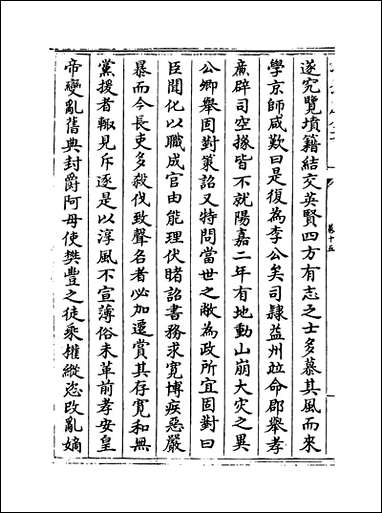 遂究覽墳籍結交英賢四方有志之士多慕其風而來
學京師咸歎曰是復為李公矣司隷益州竝命郡舉孝
廉辟司空掾皆不就陽嘉二年有地動山崩火灾之異
公卿舉固對策詔又特問當世之敝為政所宜固對曰
臣聞化以職成官由能理伏睹詔書務求寛博疾惡嚴
暴而今長吏多殺伐致聲名者必加遷賞其存寛和無
黨援者輙見斥逐是以淳風不宣薄俗未革前孝安皇
帝變亂舊典封爵阿母使樊豐之徒乘權縱恣改亂嫡
卷十五